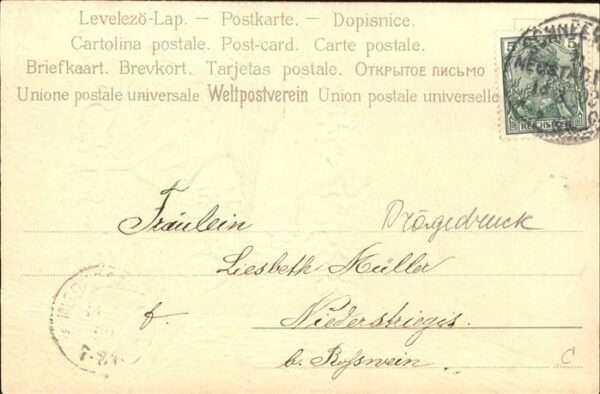 Levelező-Lap. – Postkarte. – Dopisnice.
Cartolina postale. Post-card. Carte postale.
Briefkaart. Brevkort. Tarjetas postale. ОТКРЫТОЕ ПИСЬМО
Unione postale universale Weltpostverein Union postale universelle
5 5
SCHNEEB
NEUSTADT
Fräulein
Prägedruck
Liesbeth Müller
f.
Niederstriegis.
b. Rosswein.
7-8
C